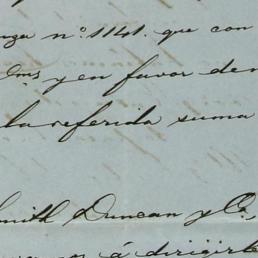 nº. 1141. que con
Cms y en favor de
la referida suma
Smith Duncan y Cª.
á dirigirle